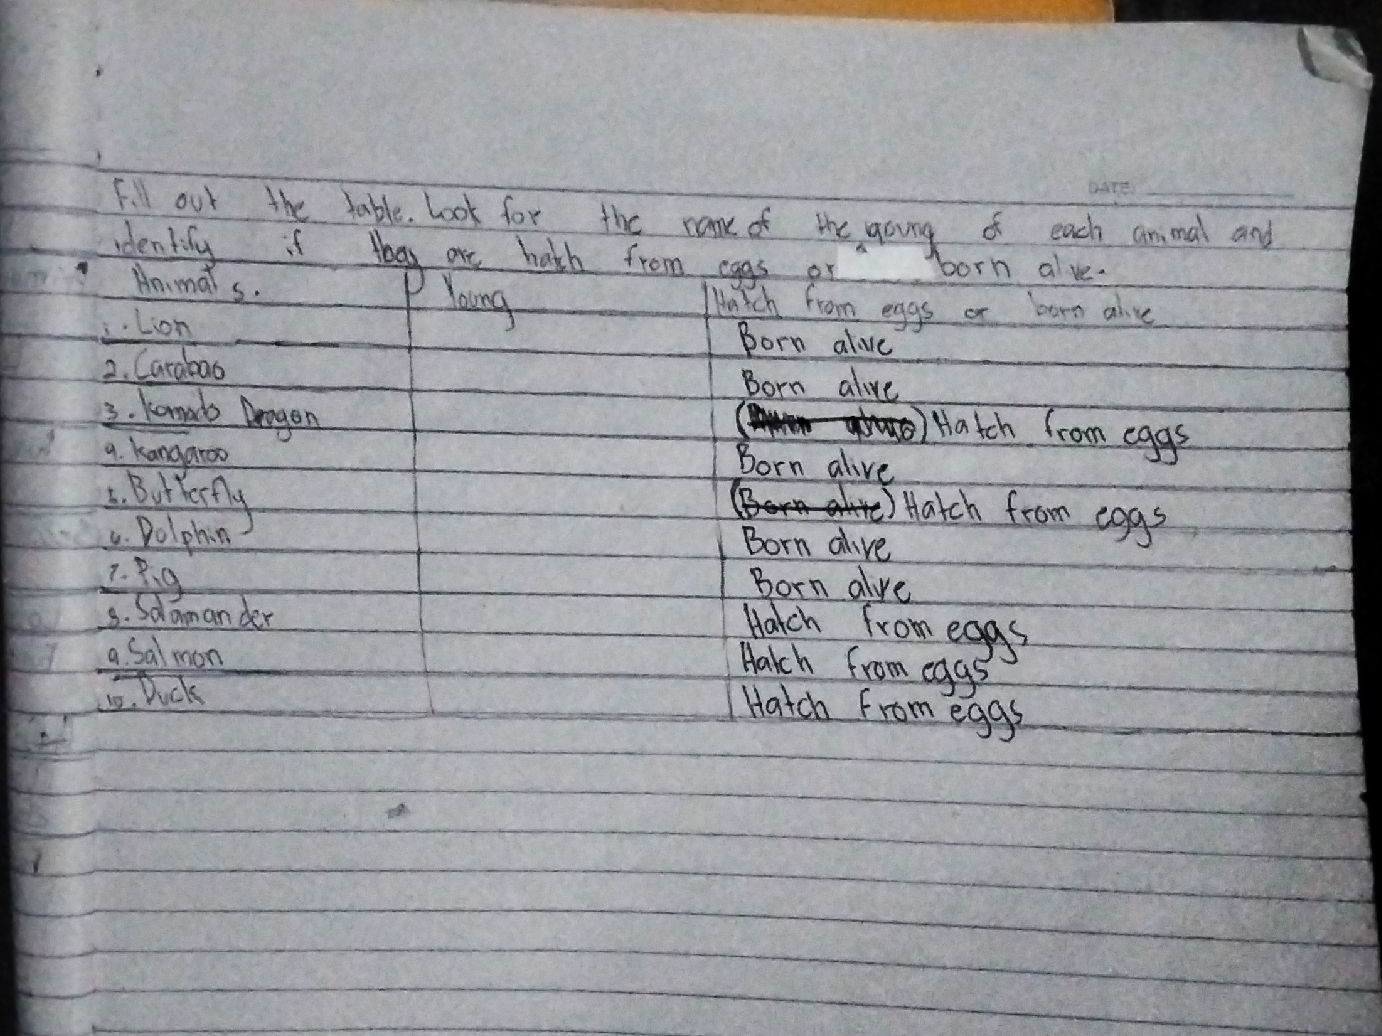 DATE:
Fill out the table. Look for the name of the young of each animal and
identify if they are hatch from eggs or born alive.
Animals. Young Hatch from eggs or born alive
1. Lion Born alive
2. Carabao Born alive
3. Komodo Dragon Hatch from eggs
4. Kangaroo Born alive
5. Butterfly (Born alive) Hatch from eggs
6. Dolphin Born alive
7. Pig Born alive
8. Salamander Hatch from eggs
9. Salmon Hatch from eggs
10. Duck Hatch from eggs